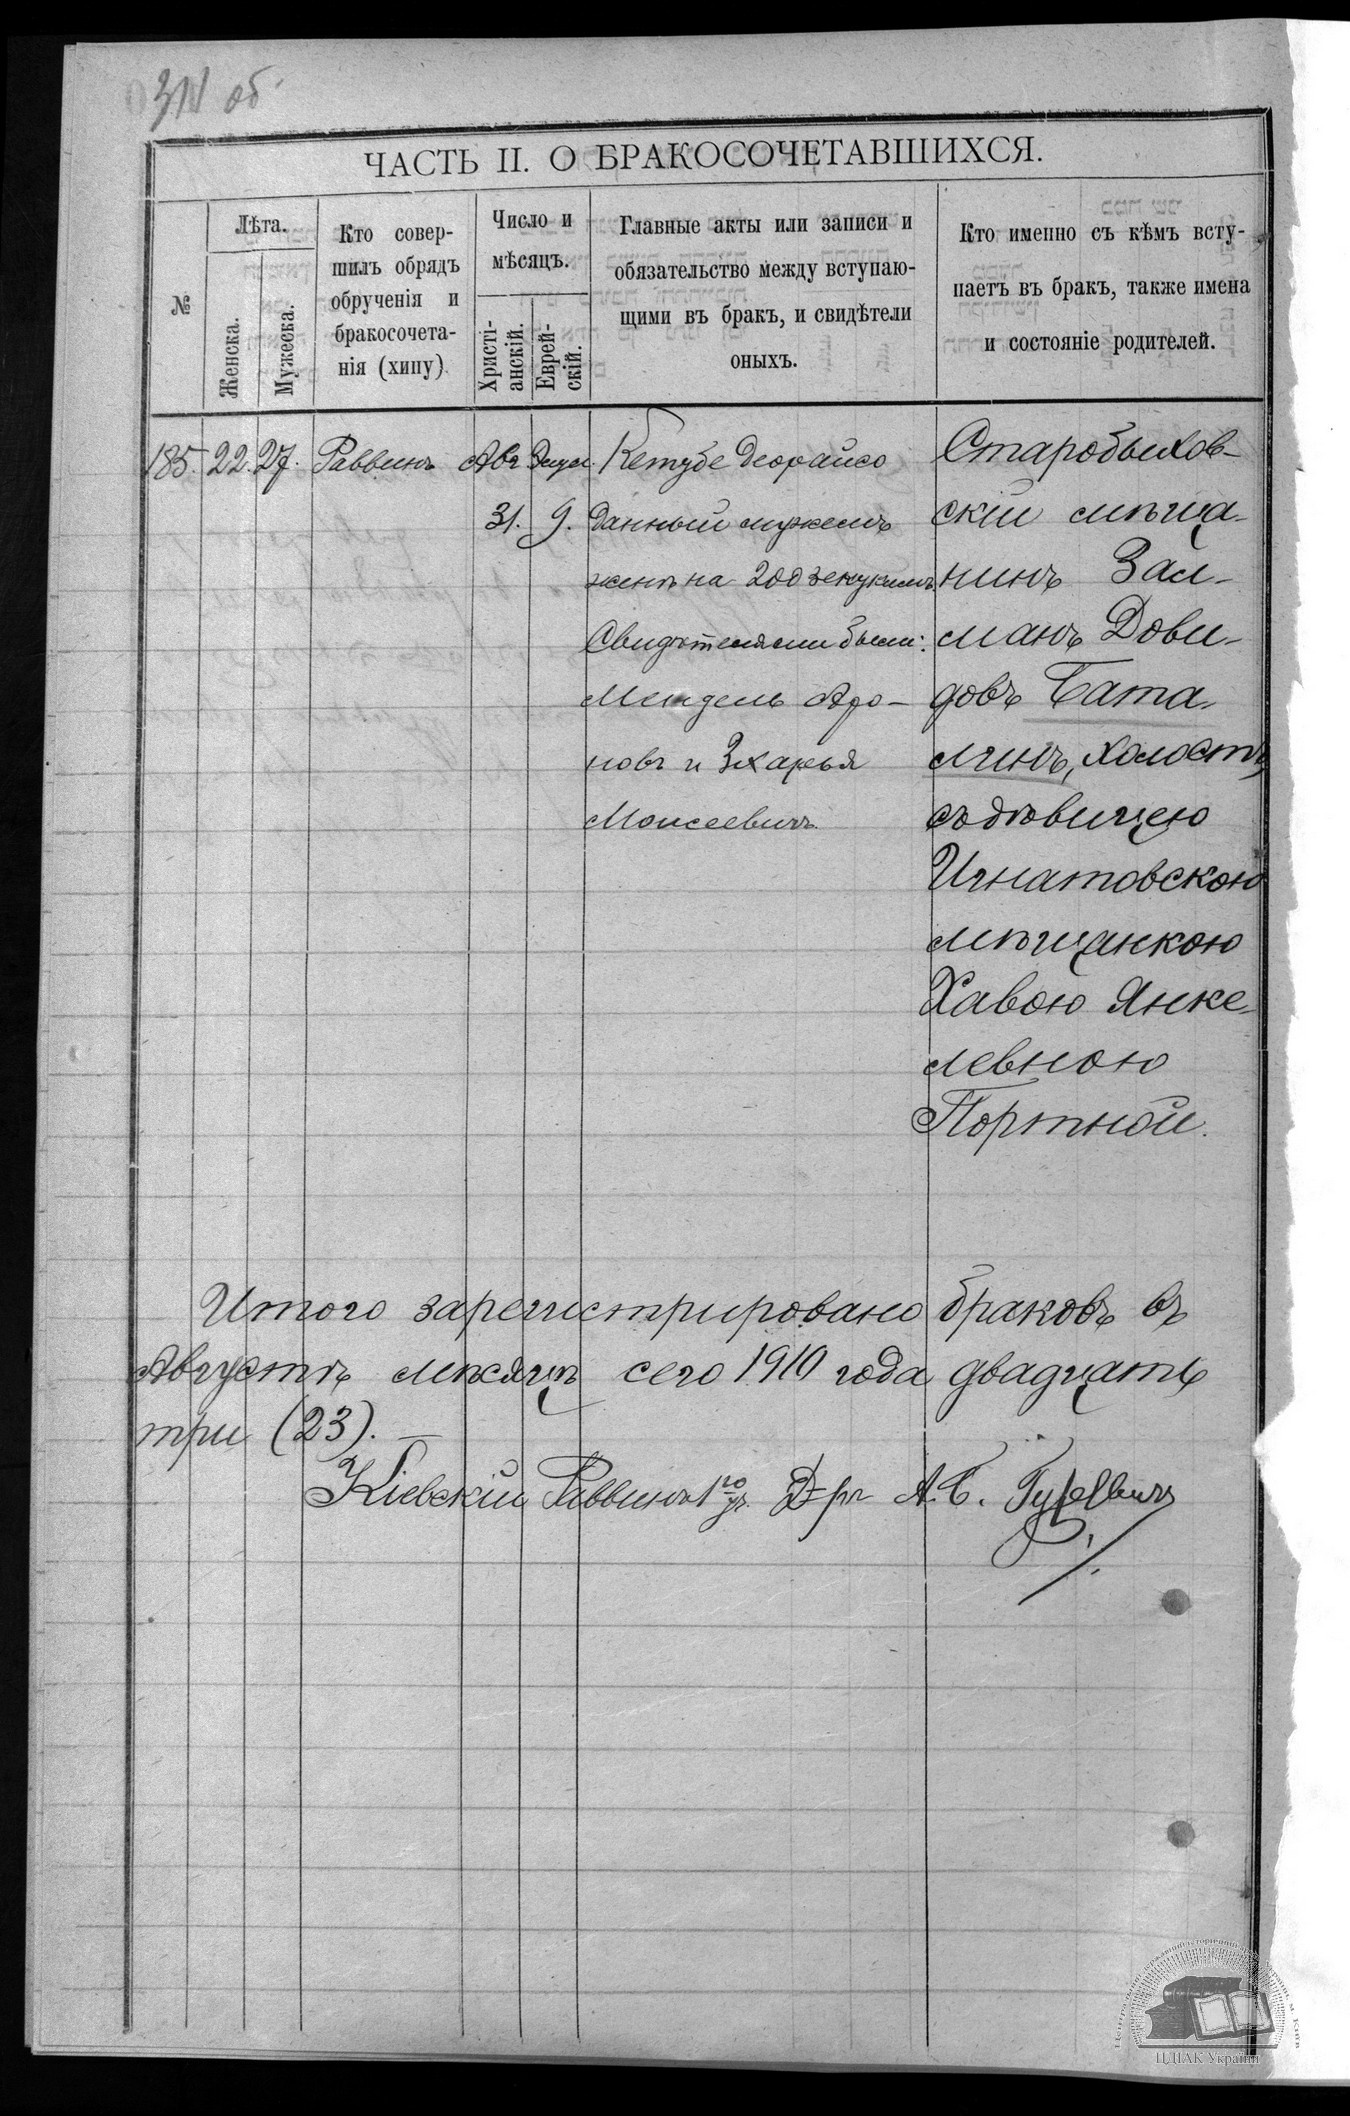 311 об.
ЧАСТЬ II. О БРАКОСОЧЕТАВШИХСЯ.
№
Лѣта.
Женска.
Мужеска.
Кто совер-
шилъ обрядъ
обрученія и
бракосочета-
нія (хипу)
Число и
мѣсяцъ.
Христі-
анскій.
Еврей-
скій.
Главные акты или записи и
обязательство между вступаю-
щими въ бракъ, и свидѣтели
оныхъ.
Кто именно съ кѣмъ всту-
паетъ въ бракъ, также имена
и состояніе родителей.
185. 22. 27. Раввинъ Авг. Элул.
31. 9.
Кетубе деорайсо
данный мужемъ
женѣ на 200 зекукимъ.
Свидѣтелями были:
Мендель Аро-
новъ и Зхарья
Моисеевичъ.
Старобыхов-
скій мѣща-
нинъ Зал-
манъ Дови-
довъ Бата-
линъ, холостъ,
съ дѣвицею
Игнатовскою
мѣщанкою
Хавою Янке-
левною
Портной.
Итого зарегистрировано браковъ въ
Августѣ мѣсяцѣ сего 1910 года двадцать
три (23). —
Кіевскій Раввинъ 1го у. Д-ръ А. Б. Гуревичъ
ЦДІАК України